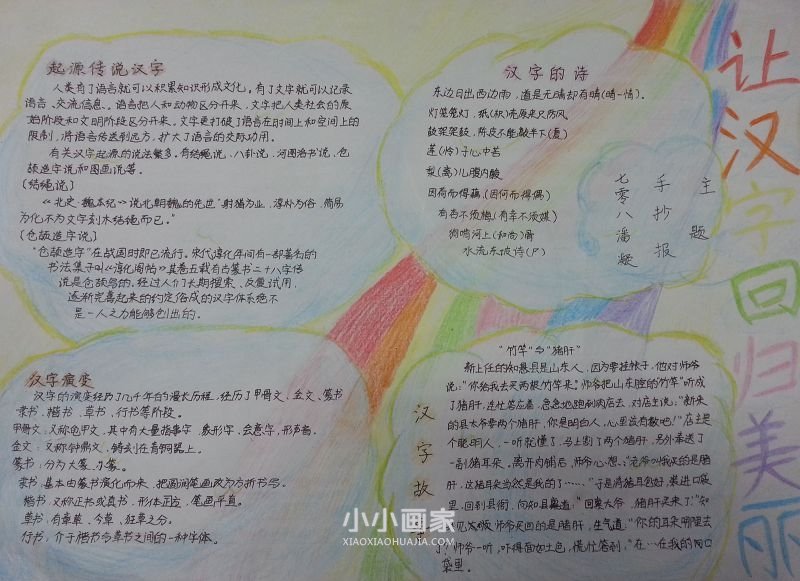 让汉字回归美丽
起源传说汉字
人类有了语言就可以积累知识形成文化。有了文字就可以记录
语言、交流信息。语言把人和动物区分开来,文字把人类社会的原
始阶段和文明阶段区分开来。文字更打破了语言在时间上和空间上的
限制,将语言传送到远方,扩大了语言的交际功用。
有关汉字起源的说法繁多。有结绳说、八卦说、河图洛书说、仓
颉造字说和图画说等。
(结绳说)
《北史·魏本纪》说北朝魏的先世"射猎为业,淳朴为俗,简易
为化不为文字刻木结绳而已。"
(仓颉造字说)
"仓颉造字"在战国时即已流行。宋代淳化年间有一部著名的
书法集子叫《淳化阁帖》其卷五载有古篆书二十八字传
说是仓颉写的。经过人们长期摸索、反复试用,
逐渐完善起来的约定俗成的汉字体系绝不
是一人之力能够创出的。
汉字的诗
东边日出西边雨,道是无晴却有晴(晴-情)。
灯笼笼灯,纸(枳)壳原来只防风
鼓架架鼓,陈皮不能敲半下(夏)
莲(怜)子心中苦
梨(离)儿腹内酸
因荷而得藕(因何而得偶)
有杏不须梅(有幸不须媒)
狗啃河上(和尚)骨
水流东坡诗(尸)
主题
手抄报
七零八潘凝
汉字演变
汉字的演变经历了几千年的漫长历程,经历了甲骨文、金文、篆书
隶书、楷书、草书、行书等阶段。
甲骨文:又称龟甲文,其中有大量指事字、象形字、会意字,形声字。
金文:又称钟鼎文,铸刻在青铜器上。
篆书:分为大篆、小篆。
隶书:基本由篆书演化而来,把圆润笔画改为方折书写。
楷书:又称正书或真书,形体正方,笔画平直。
草书:有章草、今草、狂草之分。
行书:介于楷书与草书之间的一种字体。
汉字故
"竹竿"与"猪肝"
新上任的知县是山东人,因为要挂帐子,他对师爷
说:"你给我去买两根竹竿来。"师爷把山东腔的"竹竿"听成
了猪肝,连忙答应着,急急地跑到肉店去,对店主说:"新来
的县太爷要两个猪肝,你是明白人,心里该有数吧!"店主是
个聪明人,一听就懂了,马上割了两个猪肝,另外奉送了
一副猪耳朵,离开肉铺后,师爷心想:"老爷叫我买的是猪
肝,这猪耳朵当然是我的了……"于是将猪耳包好,装进口袋
里,回到县衙,向知县禀道:"回禀太爷,猪肝买来了!"知
见师爷买回的是猪肝,生气道:"你的耳朵哪里去
了?"师爷一听,吓得面如土色,慌忙答到:"在…在我的口
袋里。
小小画家
XIAOXIAOHUAJIA.COM